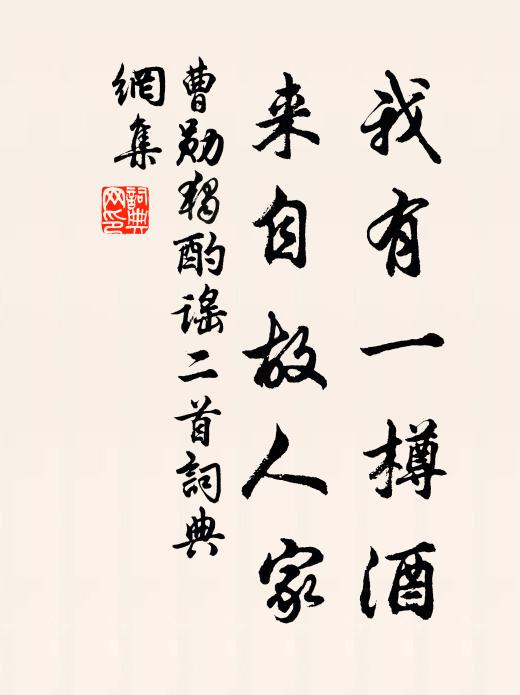 我有一樽酒
来自故人家
曹勋獨酌謠二首詞典
網集
詞典
网印